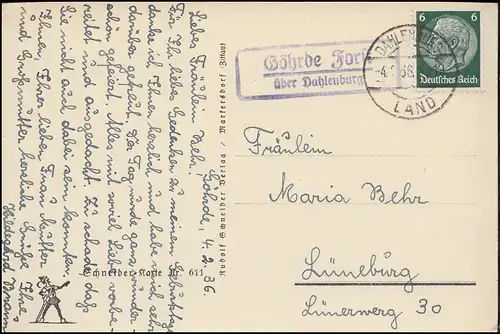 Göhrde, 4.2.36.
Liebes Fräulein Behr.
Für Ihr liebes Gedenken zu meinem Geburtstag
danke ich Ihnen herzlich und habe mich sehr
darüber gefreut. Der Tag wurde ganz wunder-
schön gefeiert. Alles mit soviel Liebe vorbe-
reitet und ausgedacht. Zu schade, daß
Sie nicht auch dabei sein konnten.
Ihnen, Ihrer lieben Frau Mutter
und Großmutter herzliche Grüße Ihre
Hildegard
Schneider-Karte Nr. 611
Rudolf Schneider Verlag / Markersdorf
Göhrde Forst
über Dahlenburg
6 6
Deutsches Reich
DAHLENBURG
-4.2.36.
LAND
Fräulein
Maria Behr
Lüneburg
Lünerweg 30